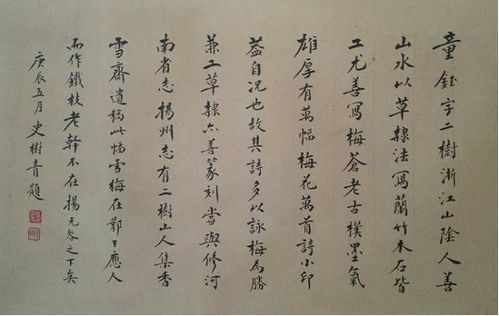 童鈺字二樹浙江山陰人善
山水以草隸法寫蘭竹木石皆
工尤善寫梅蒼老古樸墨氣
雄厚有萬幅梅花萬首詩小印
葢自況也故其詩多以詠梅為勝
兼工草隸亦善篆刻嘗與修河
南省志揚州志有二樹山人集香
雪齋遺稿此幅雪梅在鄴下應人
而作鐵枝老幹不在揚无咎之下矣
庚辰五月史樹青題